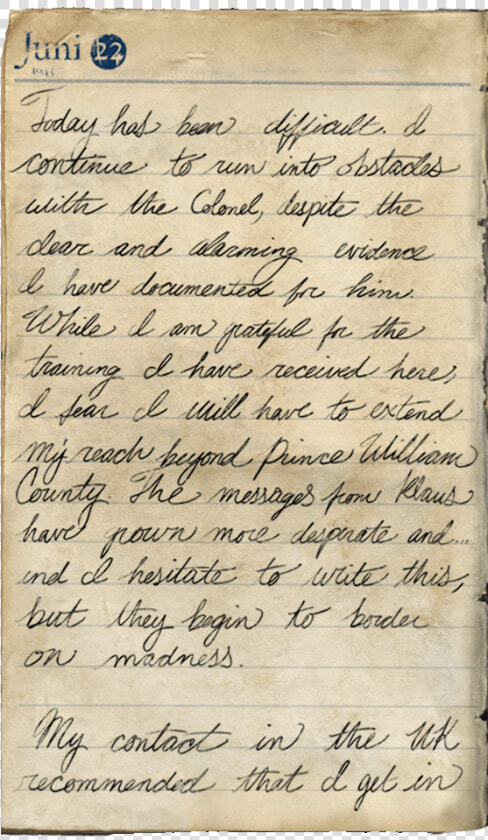 Juni 22
1943
Today has been difficult. I
continue to run into obstacles
with the Colonel, despite the
clear and alarming evidence
I have documented for him.
While I am grateful for the
training I have received here,
I fear I will have to extend
my reach beyond Prince William
County. The messages from Klaus
have grown more desperate and...
and I hesitate to write this,
but they begin to border
on madness.
My contact in the UK
recommended that I get in